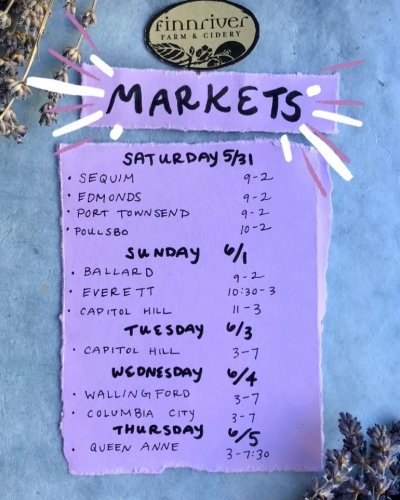 finnriver
FARM & CIDERY
MARKETS
SATURDAY 5/31
• SEQUIM 9-2
• EDMONDS 9-2
• PORT TOWNSEND 9-2
• POULSBO 10-2
SUNDAY 6/1
• BALLARD 9-2
• EVERETT 10:30-3
• CAPITOL HILL 11-3
TUESDAY 6/3
• CAPITOL HILL 3-7
WEDNESDAY 6/4
• WALLINGFORD 3-7
• COLUMBIA CITY 3-7
THURSDAY 6/5
• QUEEN ANNE 3-7:30